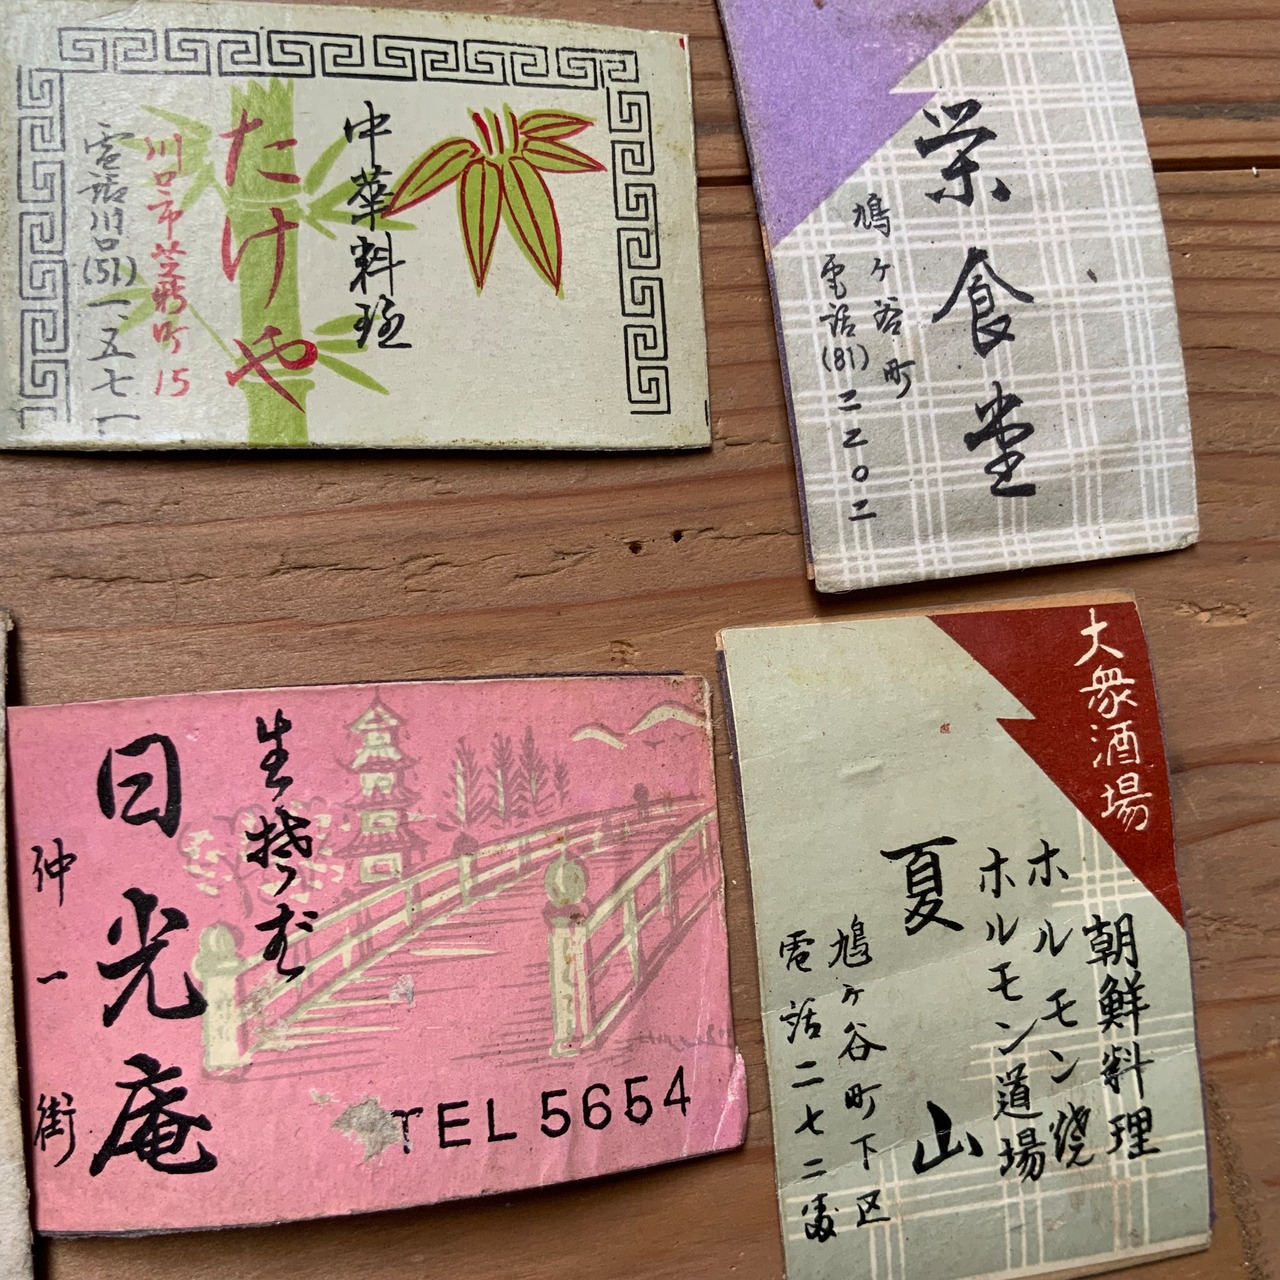 中華料理
たけや
川口市芝新町15
電話川口(51)一、五七一
栄食堂
鳩ヶ谷町
電話(81)二二〇二
生そば
日光庵
仲一街
TEL 5654
大衆酒場
朝鮮料理
ホルモン焼
ホルモン道場
夏山
鳩ヶ谷町下区
電話二七二番